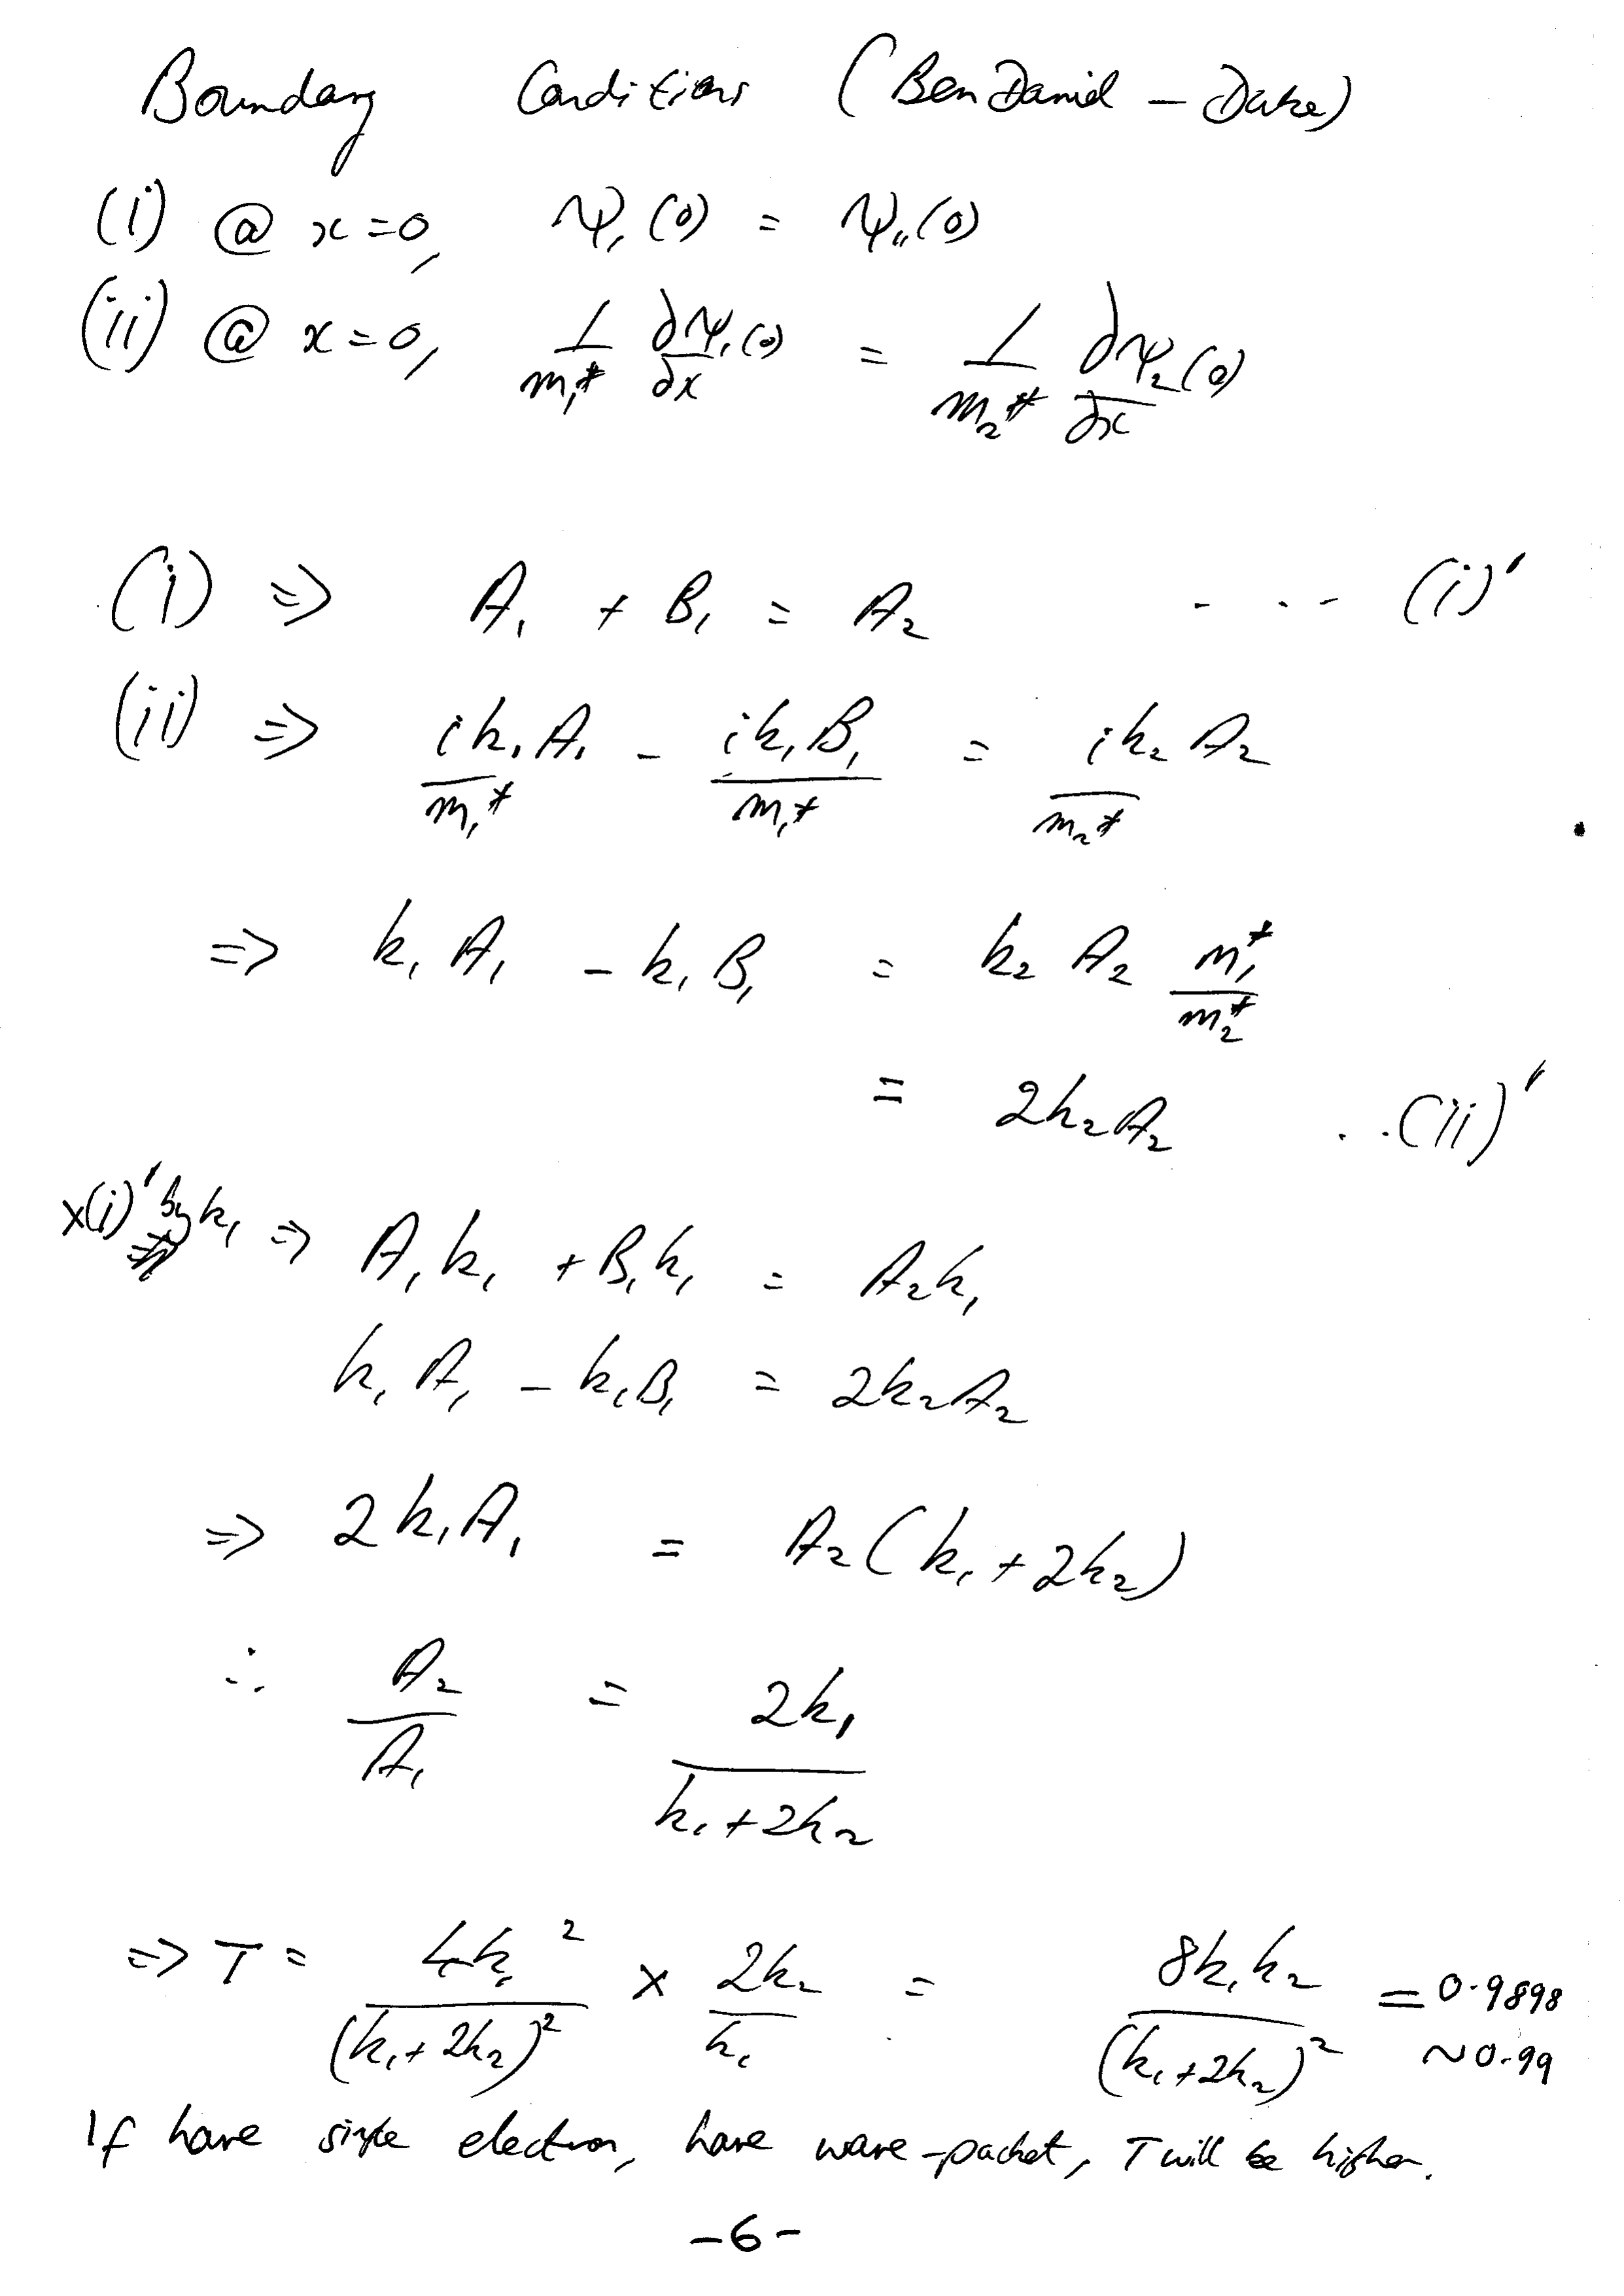 Boundary Conditions (BenDaniel – Duke)
(i) @ x=0, Ψ₁(0) = Ψ₁₁(0)
(ii) @ x=0, 1/m₁* ∂Ψ₁(0)/∂x = 1/m₂* ∂Ψ₂(0)/∂x
(i) ⇒ A₁ + B₁ = A₂ - - - (i)'
(ii) ⇒ ik₁A₁/m₁* - ik₁B₁/m₁* = ik₂A₂/m₂*
⇒ k₁A₁ - k₁B₁ = k₂A₂ m₁*/m₂*
= 2k₂A₂ ..(ii)'
x(i)' by k₁ ⇒ A₁k₁ + B₁k₁ = A₂k₁
k₁A₁ - k₁B₁ = 2k₂A₂
⇒ 2k₁A₁ = A₂(k₁+2k₂)
∴ A₂/A₁ = 2k₁/(k₁+2k₂)
⇒ T = 4k₁²/(k₁+2k₂)² × 2k₂/k₁ = 8k₁k₂/(k₁+2k₂)² = 0.9898
~0.99
If have single electron, have wave-packet, T will be higher.
-6-